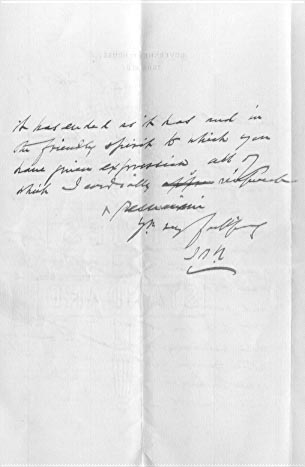 it has ended as it has and in
the friendly spirit to which you
have given expression all of
which I cordially reciprocate
Yrs very faithfully